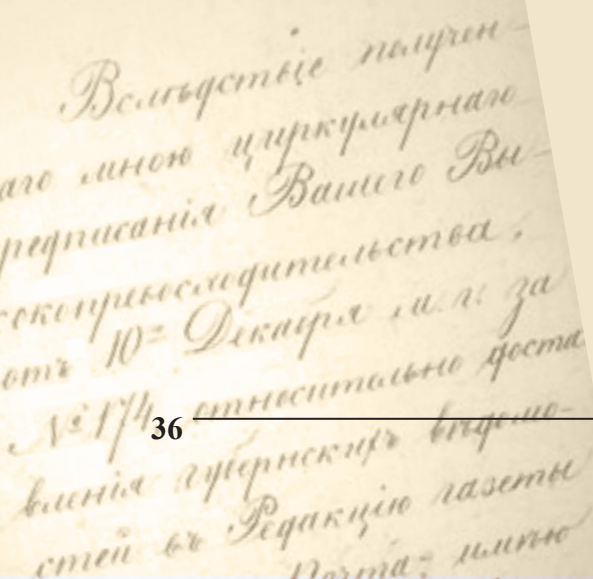 Вслѣдствіе получен-
аго мною циркулярнаго
редписанія Вашего Вы-
сокопревосходительства,
отъ 10го Декабря м. г. за
№ 174 относительно доста
36
вленія губернскихъ вѣдомо-
стей въ Редакцію газеты
Почта; имѣю